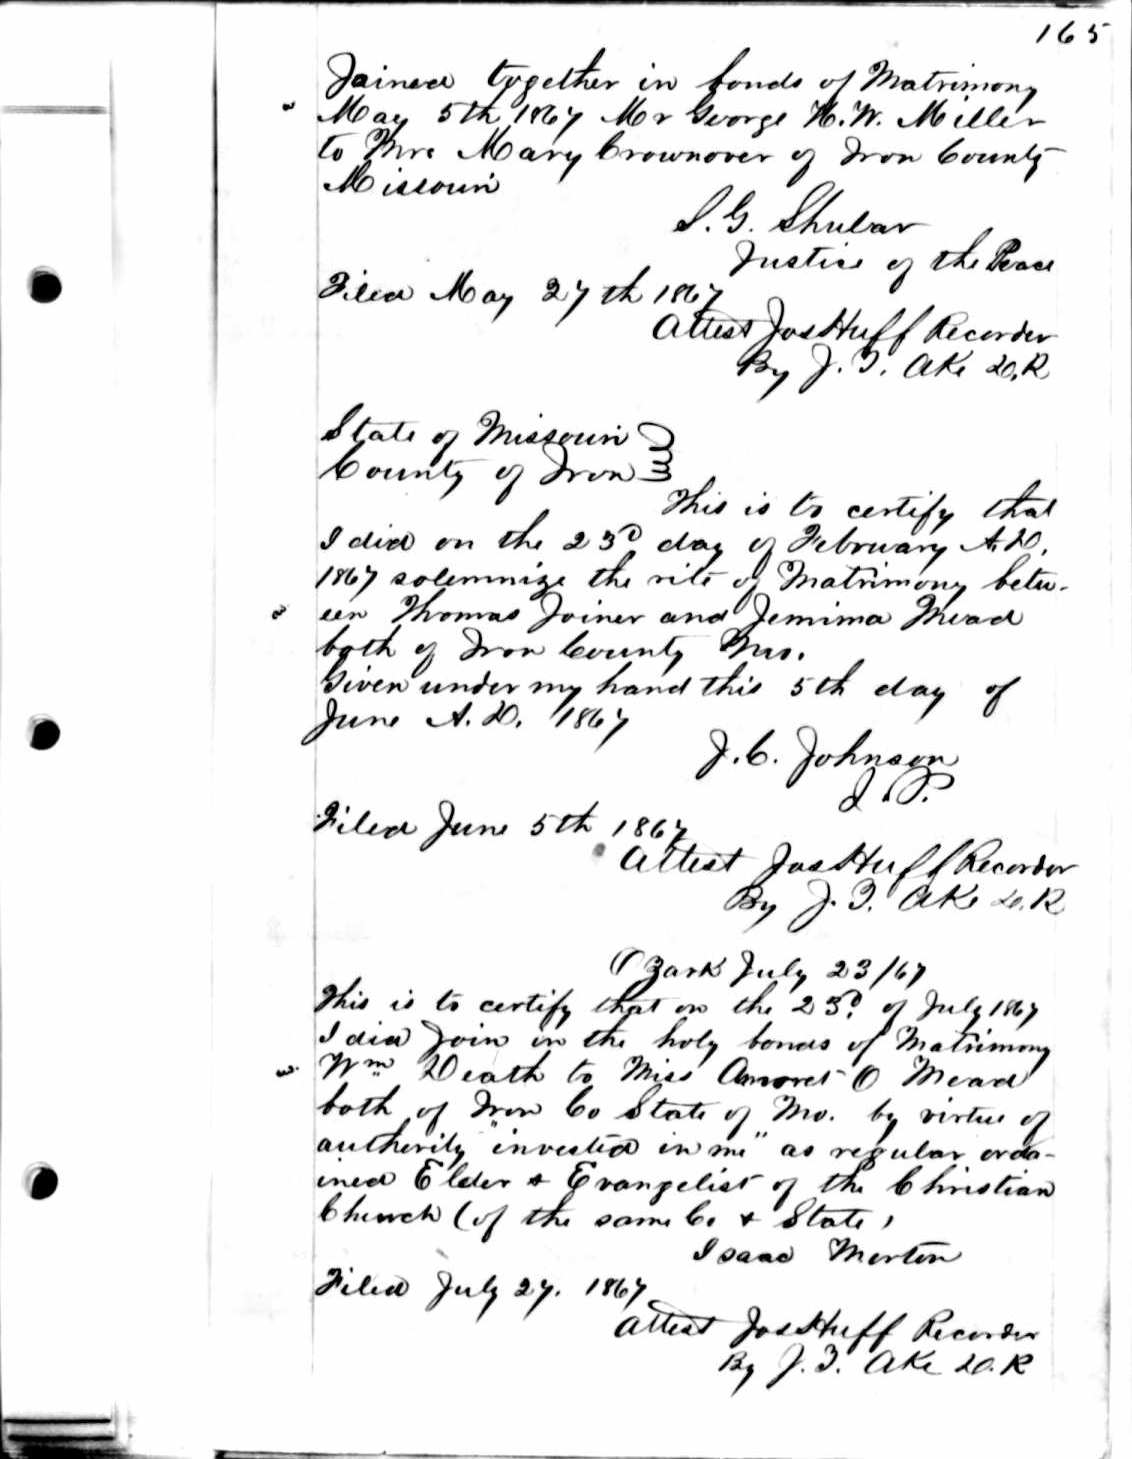 165
Joined together in bonds of Matrimony
May 5th 1867 Mr George H. W. Miller
to Mrs Mary Crownover of Iron County
Missouri
S. G. Shular
Justice of the Peace
Filed May 27th 1867
Attest Jos Huff Recorder
By J. T. Ake D. R
State of Missouri
County of Iron
This is to certify that
I did on the 23d day of February A. D.
1867 solemnize the rite of Matrimony betw-
een Thomas Joiner and Jemima Mead
both of Iron County Mo.
Given under my hand this 5th day of
June A. D. 1867
J. C. Johnson
J. P.
Filed June 5th 1867
Attest Jos Huff Recorder
By J. T. Ake D. R
Ozark July 23/67
This is to certify that on the 23d. of July 1867
I did Join in the holy bonds of Matrimony
Wm Death to Miss Amoret O Mead
both of Iron Co State of Mo. by virtue of
authority "invested in me" as regular orda-
ined Elder & Evangelist of the Christian
Church (of the same Co & State,
Isaac Morton
Filed July 27. 1867
Attest Jos Huff Recorder
By J. T. Ake D. R